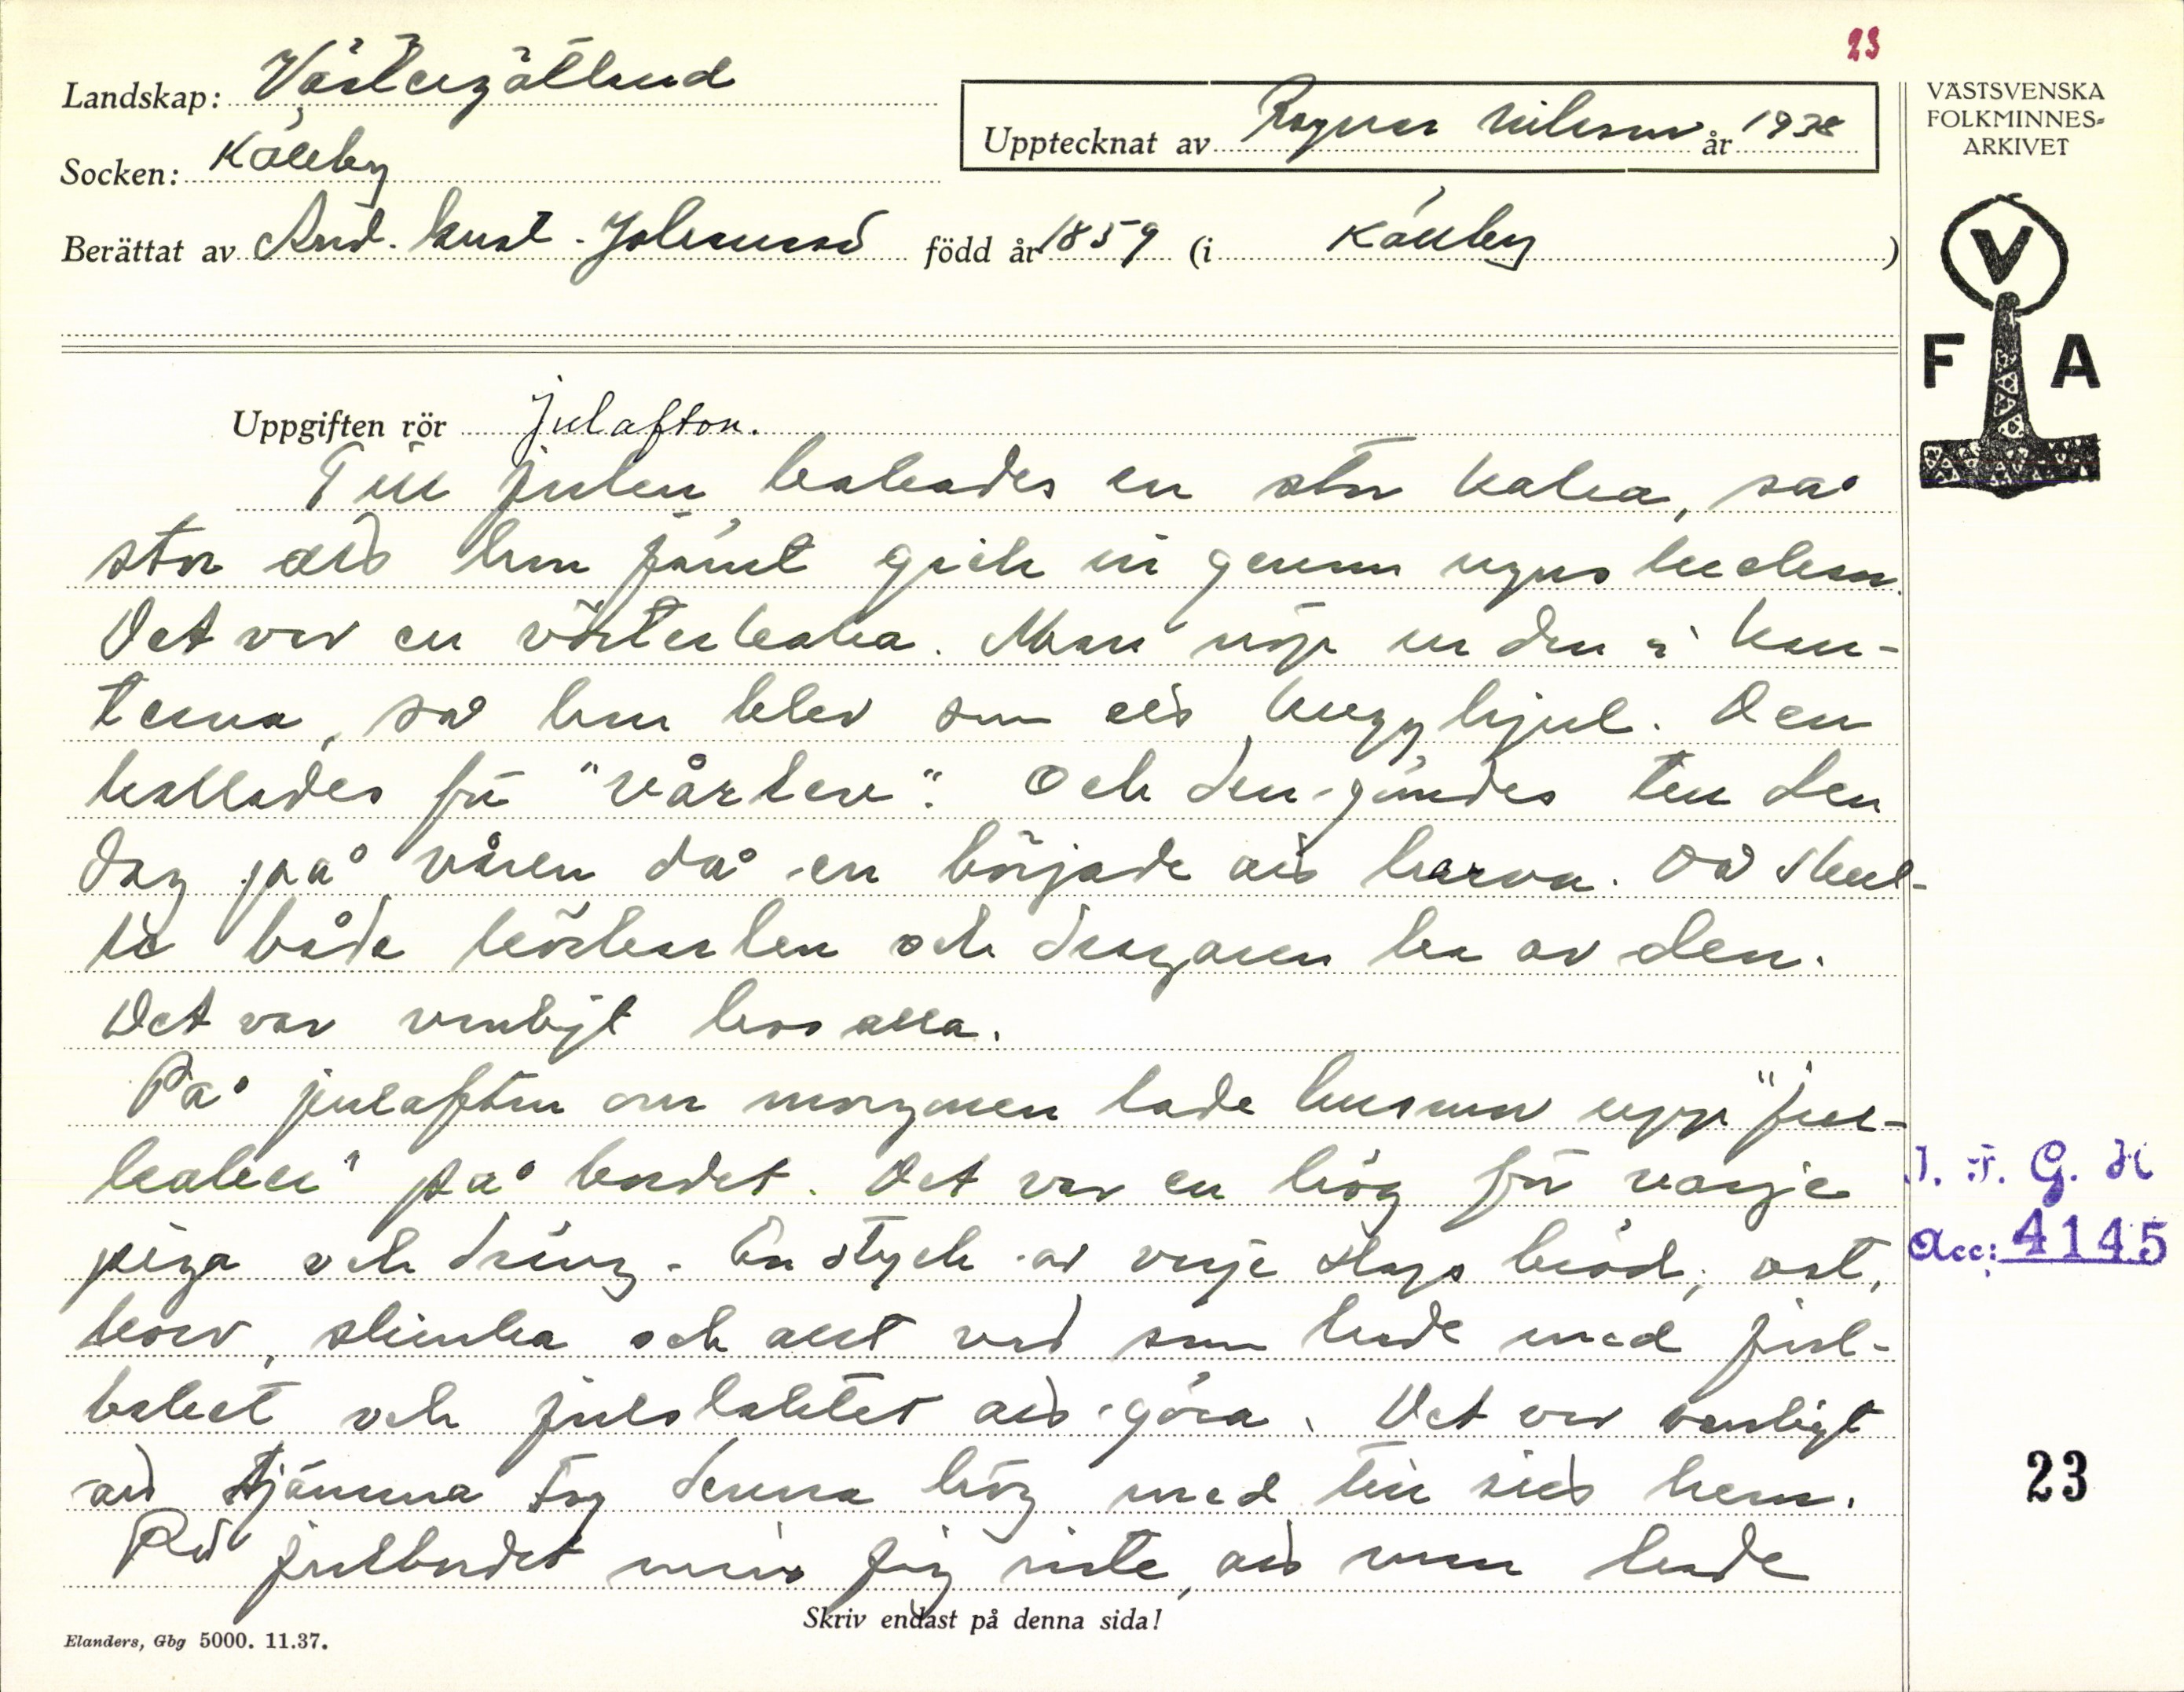 23
Landskap: Västergötland
Socken: Källby
Berättat av And. Gust. Johansson född år 1859 (i Källby)
Upptecknat av Ragnar Nilsson år 1938
VÄSTSVENSKA
FOLKMINNES-
ARKIVET
V
F A
Uppgiften rör Julafton.
Till julen bakades en stor kaka, så
stor att hon jämt gick in genom ugnsluckan.
Det var en vörtkaka. Man nöp in den i kan-
terna, så hon blev som ett kugghjul. Den
kallades för "såkaka". Och den gömdes till den
dag på våren då en började att harva. Då skul-
le både kördkarlen och dragaren ha av den.
Det var vanligt hos alla.
På julafton om morgonen lade husmor upp "jul-
kakor" på bordet. Det var en hög för varje
piga och dräng. En styck av varje slags bröd, ost,
korv, skinka och allt vad som hade med jul-
baket och julslaktet att göra. Det var vanligt
att tjänarna tog denna hög med till sitt hem.
På julbordet minns jag inte, att man hade
Skriv endast på denna sida!
Elanders, Gbg 5000. 11.37.
I. F. G. H
Acc: 4145
23